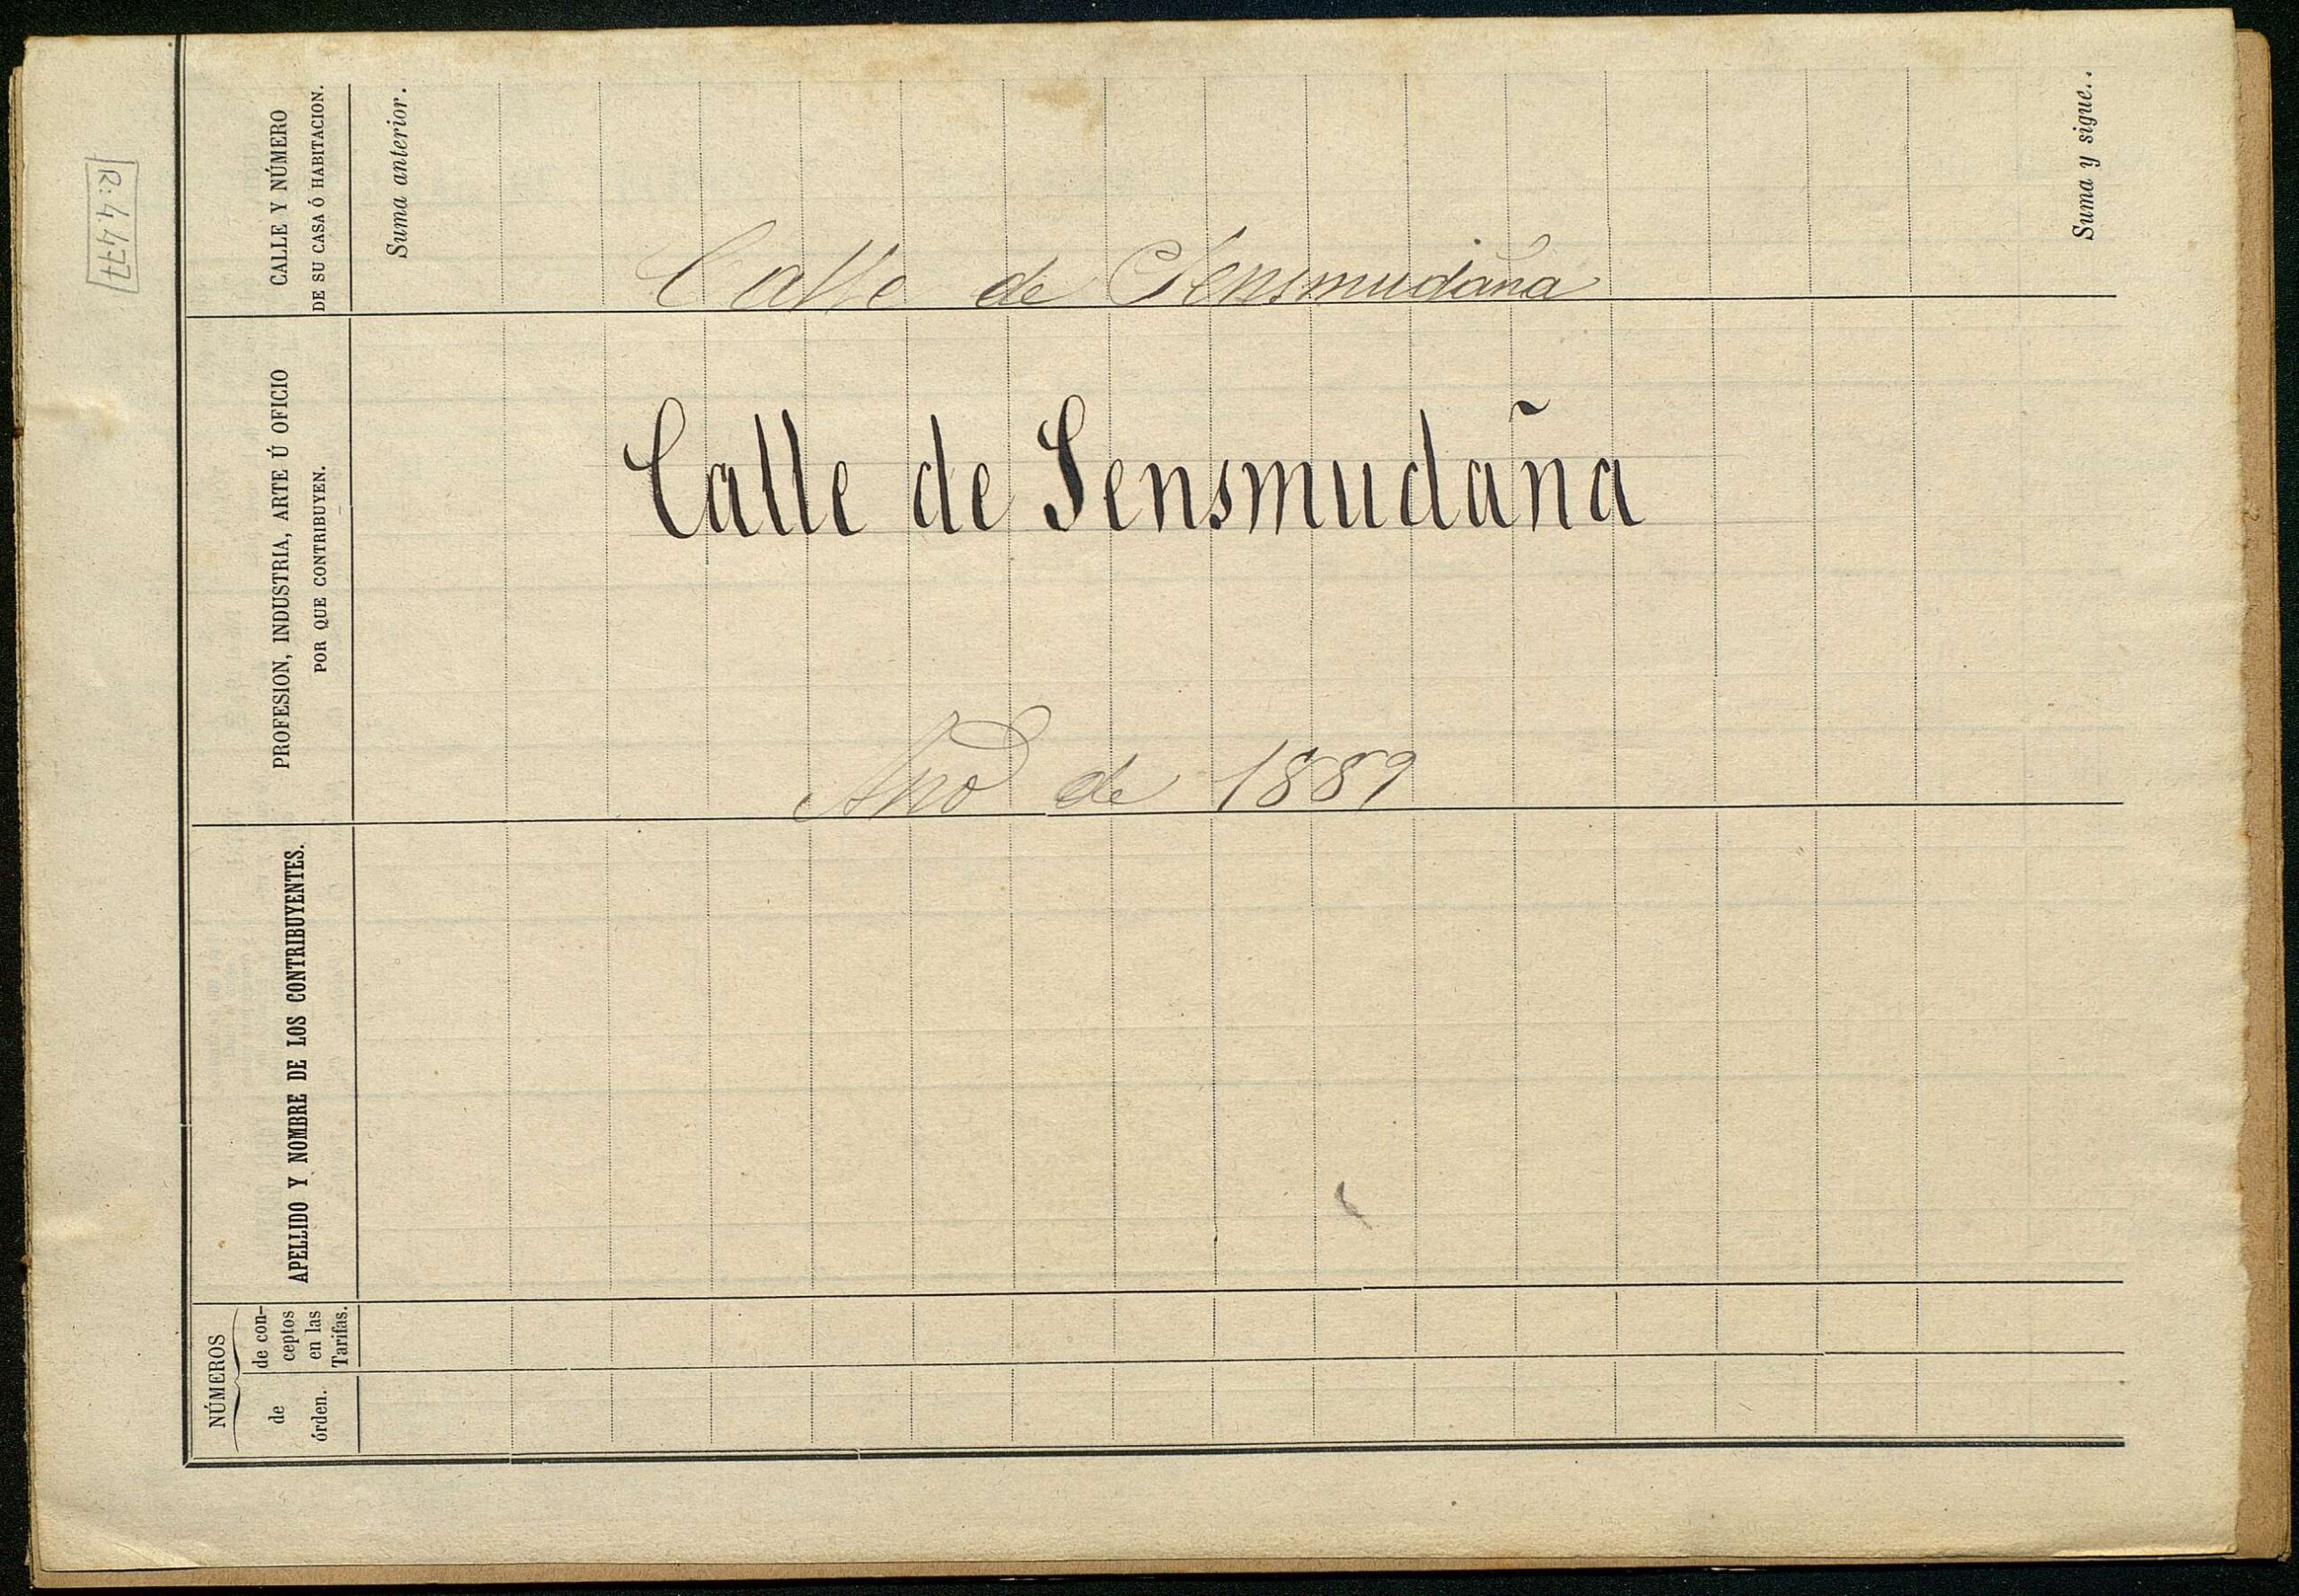 R: 4.477
Calle de Sensmudaña
Calle de Sensmudaña
Año de 1889
NÚMEROS
de
órden.
de con-
ceptos
en las
Tarifas.
APELLIDO Y NOMBRE DE LOS CONTRIBUYENTES.
PROFESION, INDUSTRIA, ARTE Ú OFICIO
POR QUE CONTRIBUYEN.
CALLE Y NÚMERO
DE SU CASA Ó HABITACION.
Suma anterior.
Suma y sigue..